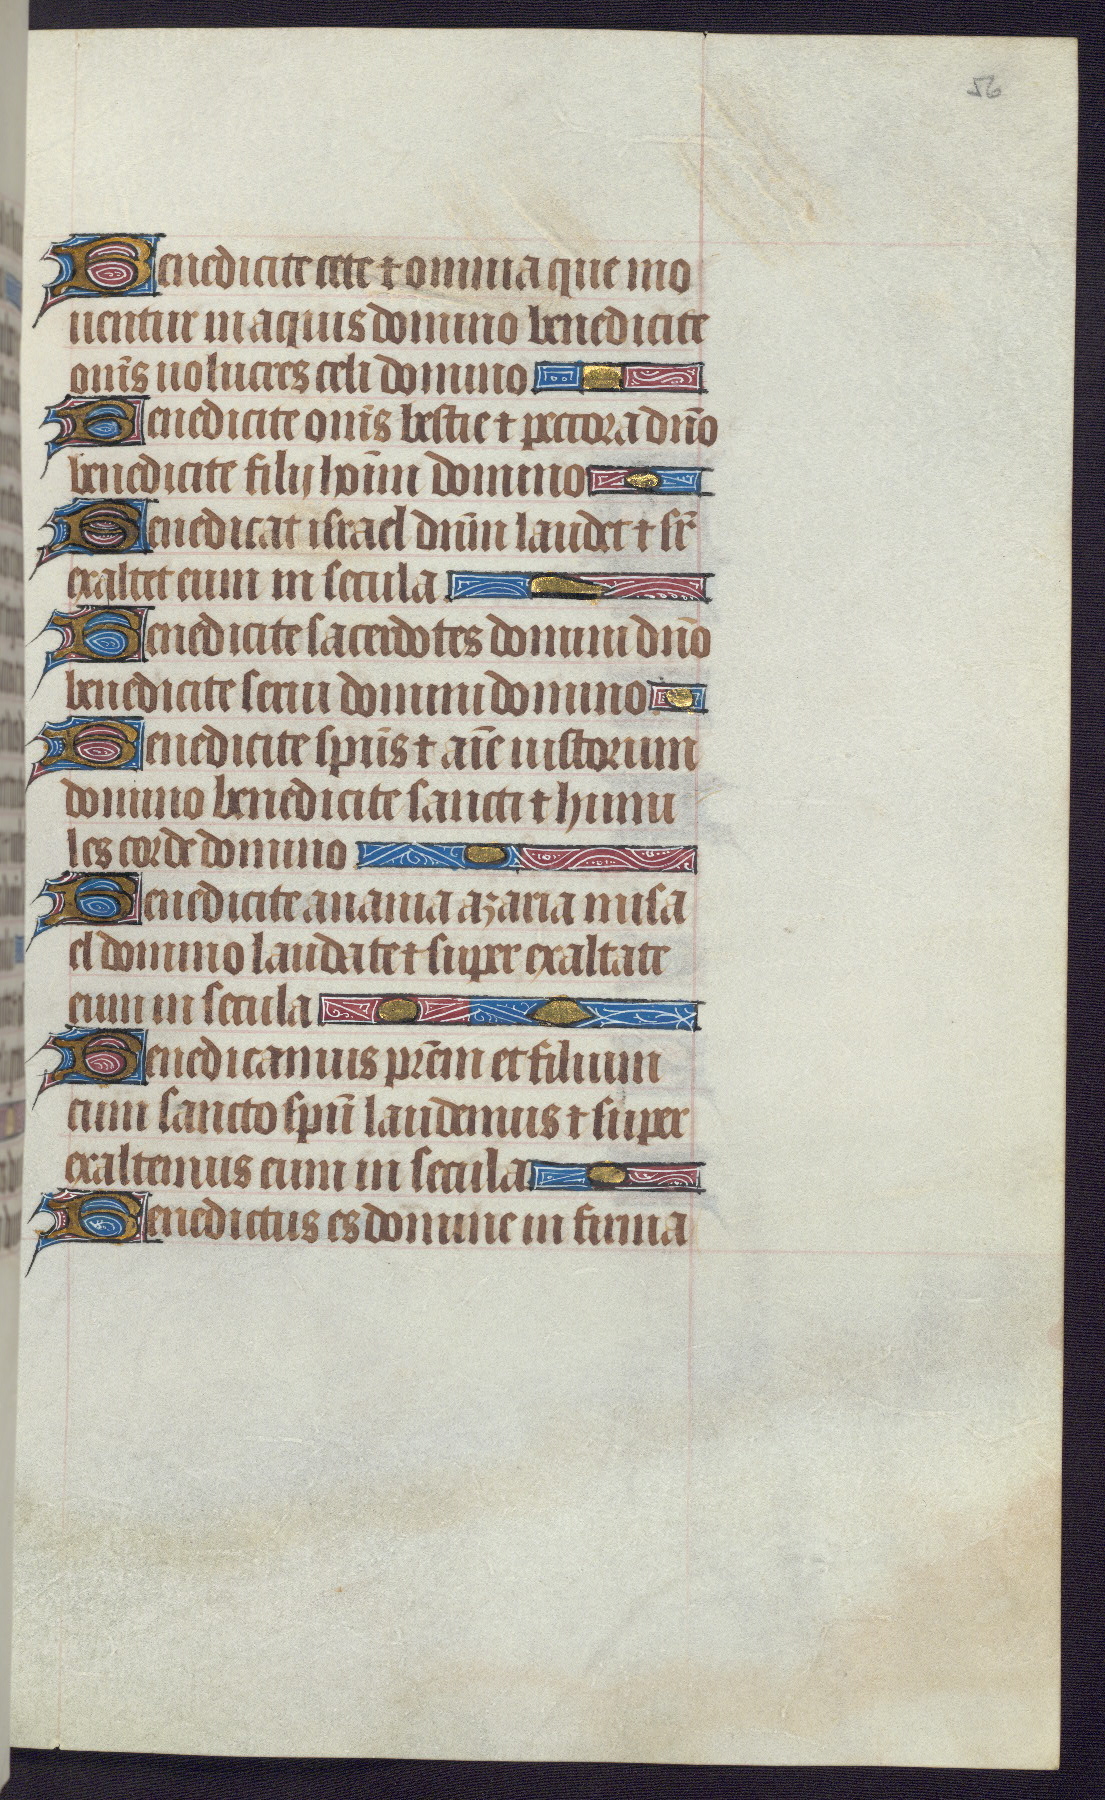 56
Benedicite cete ⁊ omnia que mo
uentur in aquis domino benedicite
om̄s uolucres celi domino
Benedicite om̄s bestie ⁊ peccora dn̄o
benedicite filij hoīm domino
Benedicat israel dnm̄ laudet ⁊ sr̄
exaltet eum in secula
Benedicite sacerdotes domini dn̄o
benedicite serui domini domino
Benedicite spūs ⁊ aīe iustorum
domino benedicite sancti ⁊ humi
les corde domino
Benedicite anania azaria misa
el domino laudate ⁊ super exaltate
eum in secula
Benedicamus pr̄em et filium
cum sancto spū laudemus ⁊ super
exaltemus eum in secula
Benedictus es domine in firma